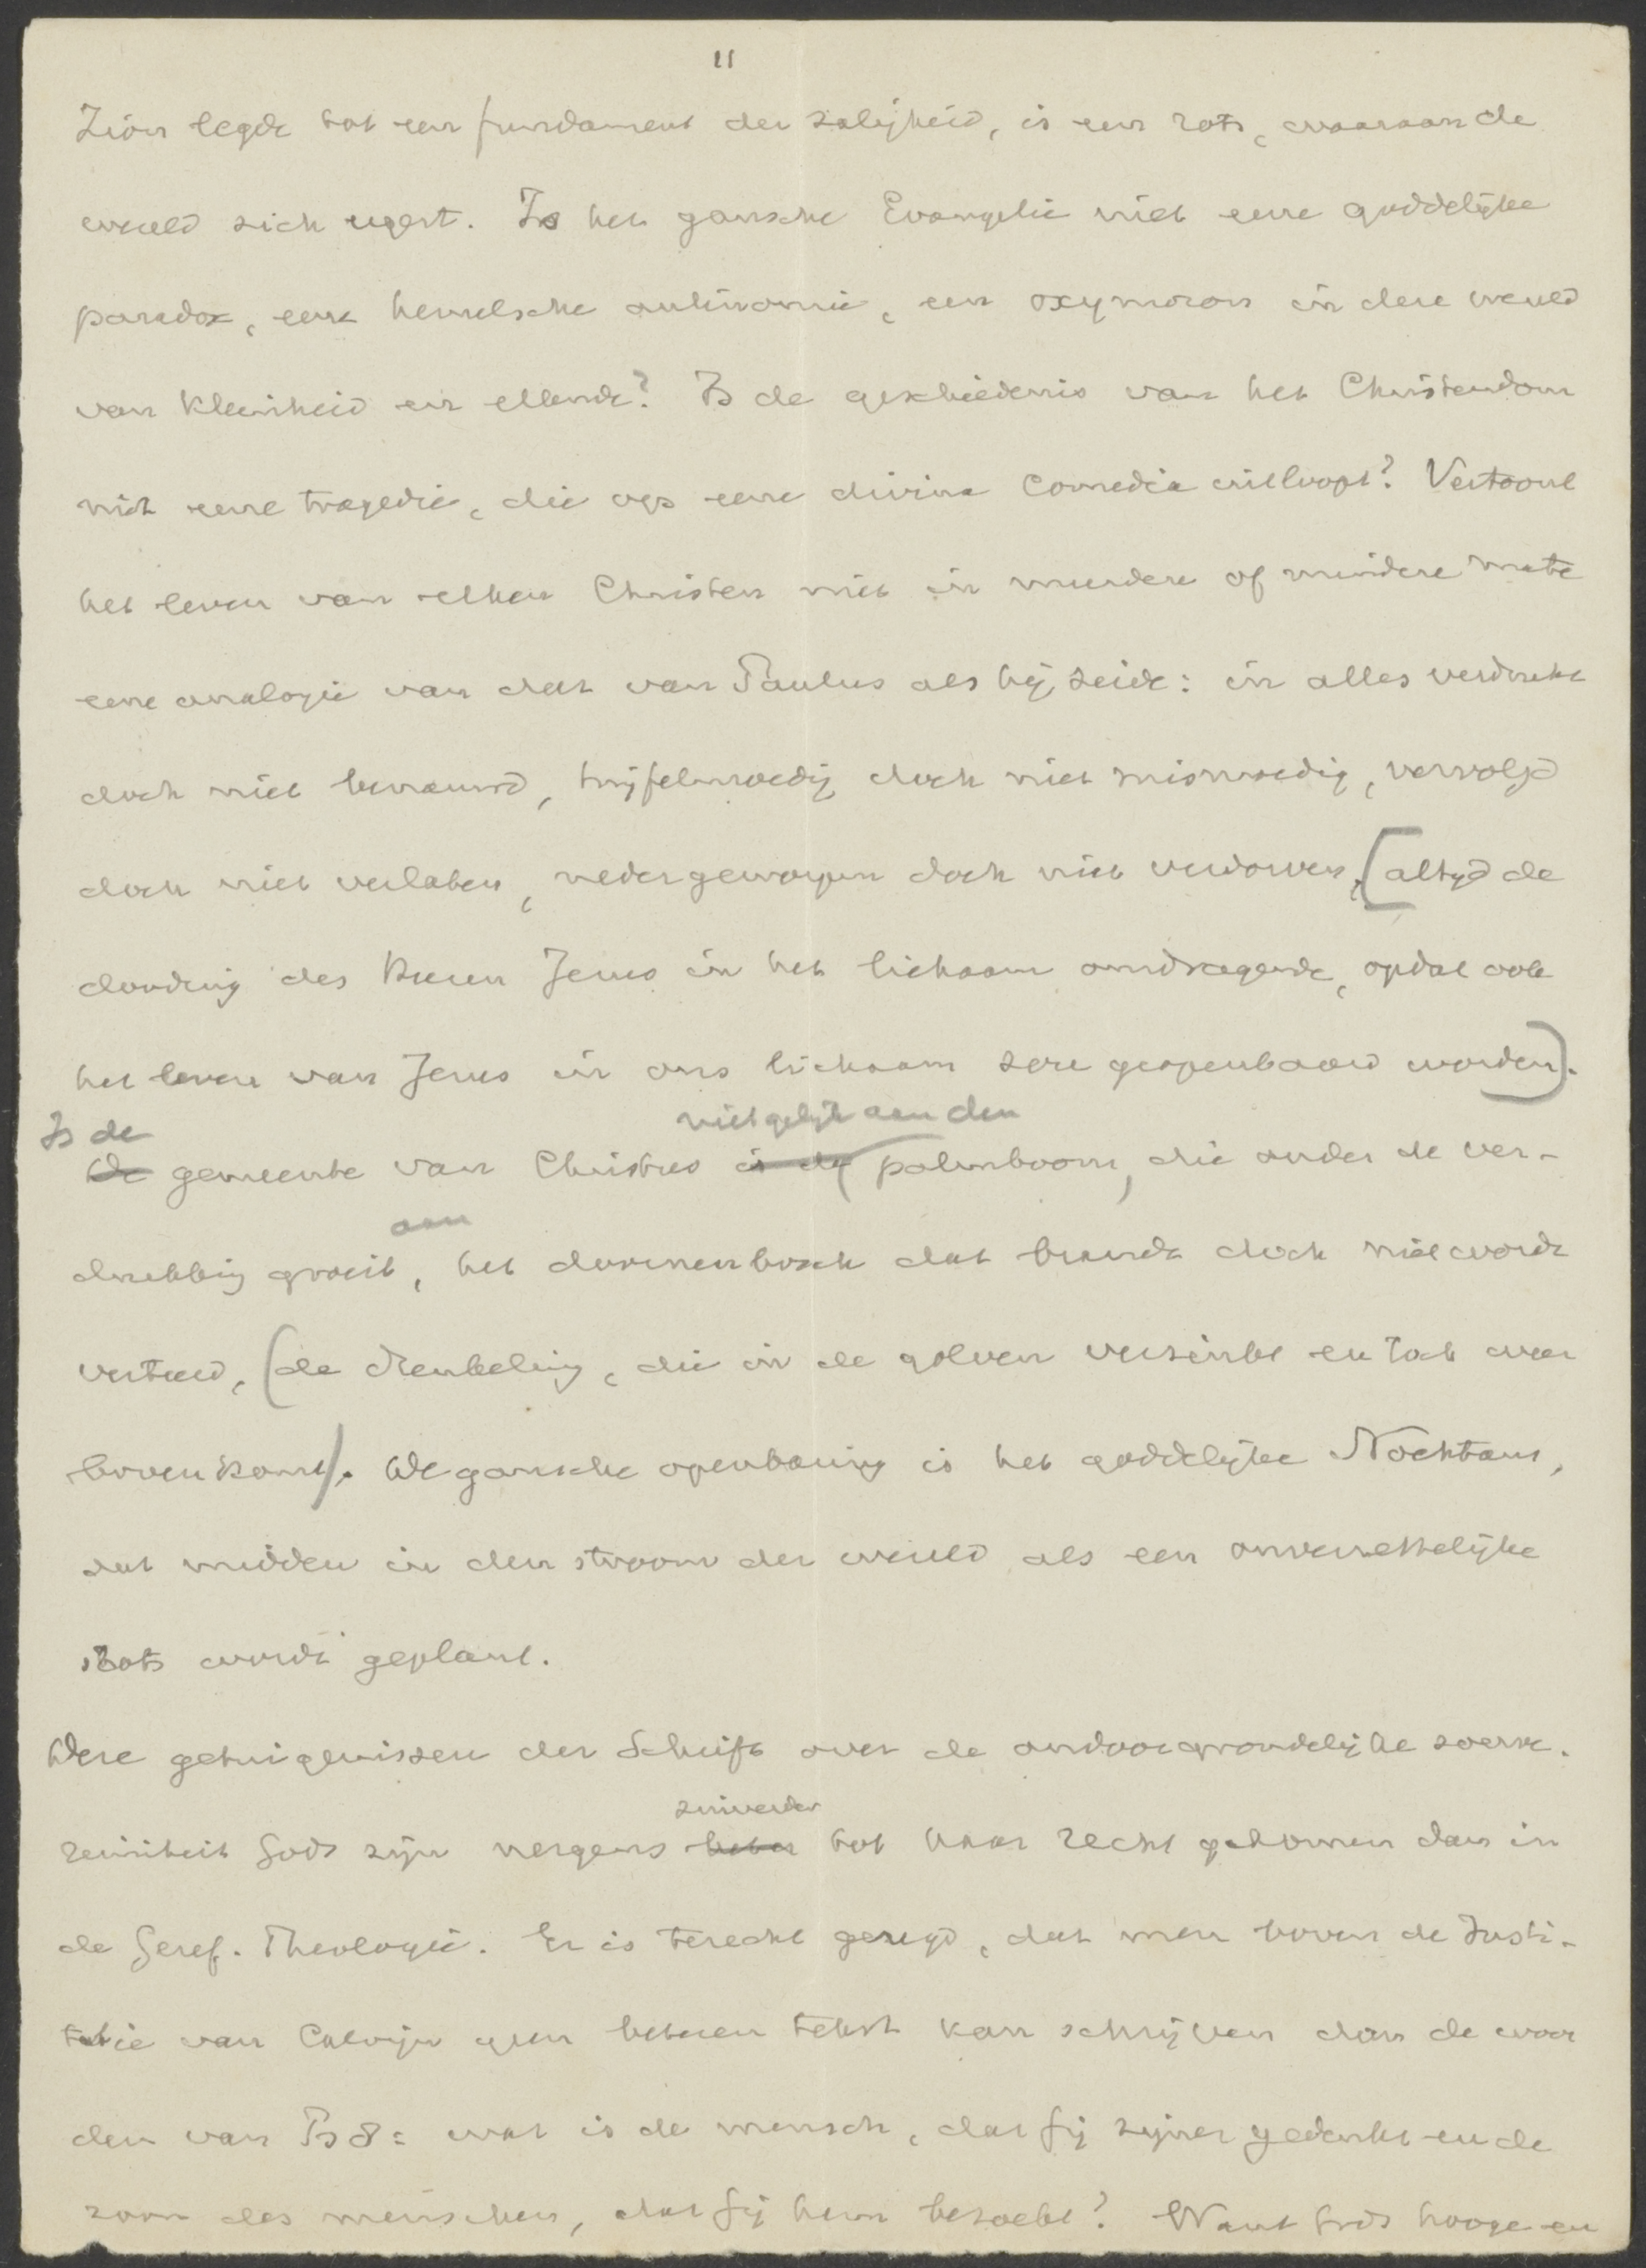 11
Zion legde tot een fundament der zaligheid, is een rots, waaraan de
wereld zich ergert. Is het gansche Evangelie niet eene goddelijke
paradox, eene hemelsche antinomie, een oxymoron in deze wereld
van kleinheid en ellende? Is de geschiedenis van het Christendom
niet eene tragedie, die op eene divina comedia uitloopt? Vertoont
het leven van elken Christen niet in meerdere of mindere mate
eene analogie van dat van Paulus als hij zeide: in alles verdrukt
doch niet benauwd, twijfelmoedig doch niet mismoedig, vervolgd
doch niet verlaten, nedergeworpen doch niet verdorven, [altijd de
dooding des Heeren Jezus in het lichaam omdragende, opdat ook
het leven van Jezus in ons lichaam zou geopenbaard worden].
Is de niet gelijk aan den
De gemeente van Christus is de palmboom, die onder de ver-
aan
drukking groeit, het doornenbosch dat brandt doch niet wordt
verteerd, (de drenkeling, die in de golven verzinkt en toch weer
boven komt). De gansche openbaring is het goddelijke Nochtans,
dat midden in den stroom der wereld als een onverzettelijke
rots wordt geplant.
Deze getuigenissen der Schrift over de ondoorgrondelijke soeve-
zuiverder
reiniteit Gods zijn nergens beter tot haar recht gekomen dan in
de Geref. Theologie. Er is terecht gezegd, dat men boven de Insti-
tutie van Calvijn geen beteren tekst kan schrijven dan de woor
den van Ps 8: wat is de mensch, dat Gij zijner gedenkt en de
zoon des menschen, dat Gij hem bezoekt? Want Gods hooge en